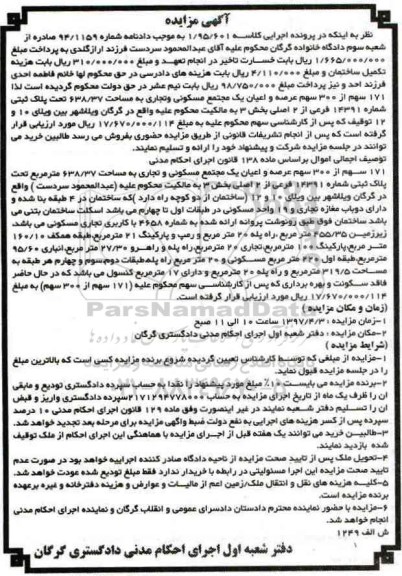 آگهی مزایده
نظر به اینکه در پرونده اجرایی کلاسه 1/95/601 به موجب دادنامه شماره 94/1159 صادره از
شعبه سوم دادگاه خانواده گرگان محکوم علیه آقای عبدالمحمود سردست فرزند ارازگلدی به پرداخت مبلغ
1/665/000/000 ریال بابت خسارت تاخیر در انجام تعهد و مبلغ 310/000/000 ریال بابت هزینه
تکمیل ساختمان و مبلغ 4/110/000 ریال بابت هزینه های دادرسی در حق محکوم لها خانم فاطمه احدی
فرزند احد و نیز پرداخت مبلغ 98/750/000 ریال بابت نیم عشر در حق دولت محکوم گردیده است لذا
171 سهم از 300 سهم عرصه و اعیان یک مجتمع مسکونی وتجاری به مساحت 638/37 تحت پلاک ثبتی
شماره 14391 فرعی از 2 اصلی بخش 3 به مالکیت محکوم علیه واقع در گرگان ویلاشهر بین ویلای 10 و
12 توقیف که پس از کارشناسی سهم محکوم علیه به مبلغ 17/670/000/114 ریال مورد ارزیابی قرار
گرفته است که پس از انجام تشریفات قانونی از طریق مزایده حضوری بفروش می رسد طالبین خرید می
توانند در جلسه مزایده شرکت و پیشنهاد خود را ارائه و تسلیم نمایند.
توصیف اجمالی اموال براساس ماده 138 قانون اجرای احکام مدنی
171 سهم از 300 سهم عرصه و اعیان یک مجتمع مسکونی و تجاری به مساحت 638/37 مترمربع تحت
پلاک ثبتی شماره 14391 فرعی از 2 اصلی بخش 3 به مالکیت محکوم علیه (عبدالمحمود سردست) واقع
در گرگان ویلاشهر بین ویلای 10 و 12 (ساختمان از دو گوچه راه دارد) که ساختمان در 4 طبقه بنا شده و
دارای دوباب مغازه تجاری و 10 واحد مسکونی در طبقات اول تا چهارم می باشد اسکلت ساختمان بتنی می
باشد ساختمان فوق طبق رونوشت پروانه ارائه شده به شماره 4658 با کاربری تجاری مسکونی می باشد،
زیرزمین 255/35 مترمربع، راه پله 20 متر مربع و رمپ و پارکینگ 21 مترمربع، طبقه همکف 160/10
متر مربع پارکینگ، 110 مترمربع تجاری 20 مترمربع راه پله و راهرو 27/30 متر مربع، انباری 95/60
مترمربع، طبقه اول 320 متر مربع مسکونی و 20 متر مربع راه پله، طبقات دوم، سوم و چهارم هر طبقه به
مساحت 319/5 مترمربع و راه پله 20 مترمربع و دارای 17 مترمربع کنسول می باشد که در حال حاضر
فاقد سکونت و بهره برداری که پس از کارشناسی سهم محکوم علیه (171 سهم از 300 سهم) به مبلغ
17/670/000/114 ریال مورد ارزیابی قرار گرفته است.
(زمان و مکان مزایده)
1-زمان مزایده: 1397/4/3 ساعت 10 الی 11 صبح
2-مکان مزایده: دفتر شعبه اول اجرای احکام مدنی دادگستری گرگان
(شرایط مزایده)
1-مزایده از مبلغی که توسط کارشناس تعیین گردیده شروع برنده مزایده کسی است که بالاترین مبلغ
را در جلسه مزایده قبول نماید.
2-برنده مزایده می بایست 10٪ مبلغ مورد پیشنهاد را نقدا به حساب سپرده دادگستری تودیع و مابقی
آن را ظرف یک ماه از تاریخ اجرای مزایده به حساب سپرده دادگستری واریز و قبض
آن را تسلیم دفتر شعبه نمایند در غیر اینصورت وفق ماده 129 قانون اجرای احکام مدنی 10 درصد
سپرده پس از کسر هزینه های اجرایی به نفع دولت ضبط واگهی مزایده برای مرحله بعد تجدید خواهد شد.
3-طالبین خرید می توانند یک هفته قبل از اجرای مزایده با هماهنگی این اجرای احکام از ملک توقیف
شده بازدید نمایند.
4-تحویل ملک پس از تایید صحت مزایده از ناحیه دادگاه صادر کننده اجراییه خواهد بود در صورت عدم
تایید صحت مزایده این اجرا مسئولیتی در رابطه با خریدار ندارد فقط مبلغ تودیع شده عودت خواهد شد.
5-کلیه هزینه های نقل و انتقال ملک/زمین اعم از مالیات و عوارض و هزینه دفترخانه و غیره برعهده
برنده مزایده است.
6-مزایده با حضور نماینده محترم دادستان دادسرای عمومی و انقلاب گرگان و نماینده اجرای احکام مدنی
انجام خواهد شد.
ش الف 1249
دفتر شعبه اول اجرای احکام مدنی دادگستری گرگان
ParsNamadData